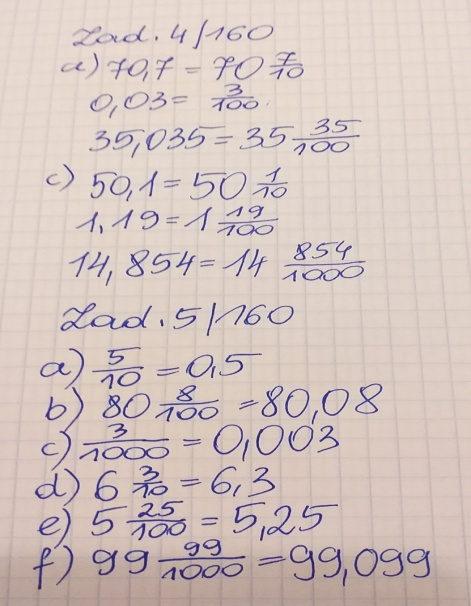 Zad. 4/160
a) 70,7 = 70 7/10
0,03 = 3/100
35,035 = 35 35/100
c) 50,1 = 50 1/10
1,19 = 1 19/100
14,854 = 14 854/1000
Zad. 5/160
a) 5/10 = 0,5
b) 80 8/100 = 80,08
c) 3/1000 = 0,003
d) 6 3/10 = 6,3
e) 5 25/100 = 5,25
f) 99 99/1000 = 99,099